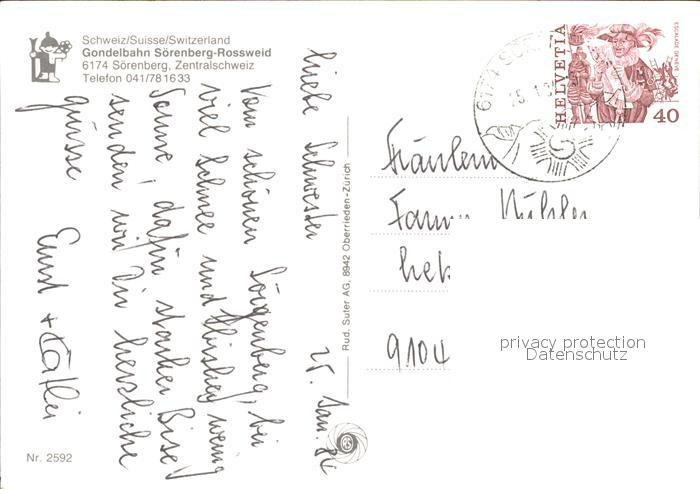 Schweiz/Suisse/Switzerland
Gondelbahn Sörenberg-Rossweid
6174 Sörenberg, Zentralschweiz
Telefon 041/781633
liebe Schwester 25. Jan. 86
Vom schönen Sörenberg, bei
viel Schnee und wenig
Sonne, dafür starker Bise!
senden wir Dir herzliche
Grüsse
Ernst +
Nr. 2592
Rud. Suter AG, 8942 Oberrieden-Zürich
6174 SÖR
HELVETIA
ESCALADE GENÈVE
40
Fräulein
9104
privacy protection
Datenschutz